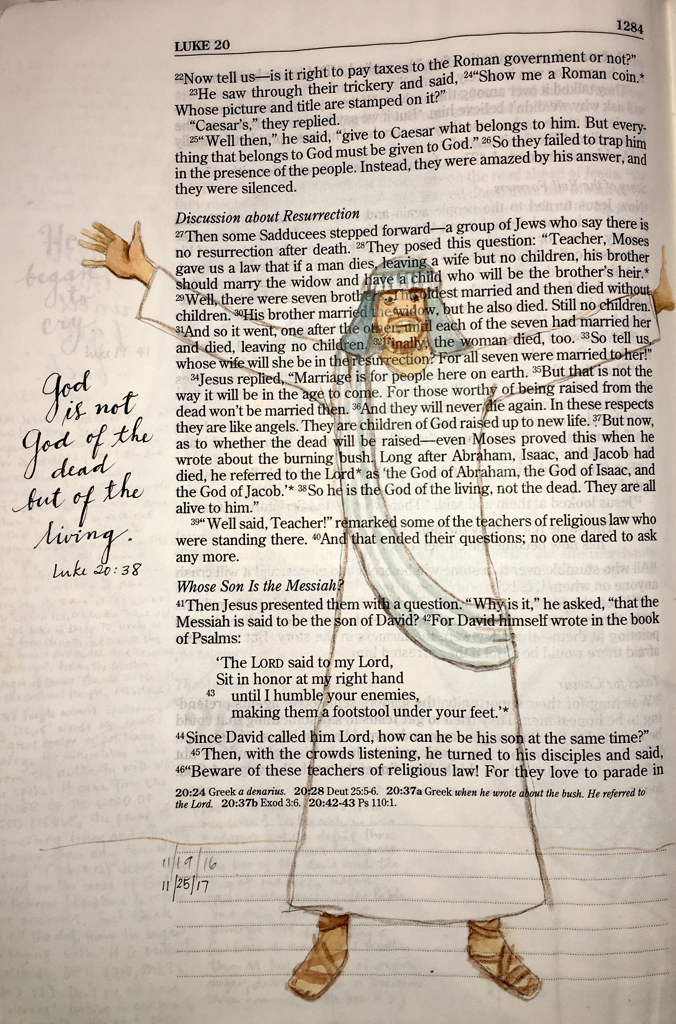 LUKE 20
1284
²²Now tell us—is it right to pay taxes to the Roman government or not?”
²³He saw through their trickery and said, ²⁴“Show me a Roman coin.*
Whose picture and title are stamped on it?”
“Caesar’s,” they replied.
²⁵“Well then,” he said, “give to Caesar what belongs to him. But every-
thing that belongs to God must be given to God.” ²⁶So they failed to trap him
in the presence of the people. Instead, they were amazed by his answer, and
they were silenced.
Discussion about Resurrection
²⁷Then some Sadducees stepped forward—a group of Jews who say there is
no resurrection after death. ²⁸They posed this question: “Teacher, Moses
gave us a law that if a man dies, leaving a wife but no children, his brother
should marry the widow and have a child who will be the brother’s heir.*
²⁹Well, there were seven brothers—the oldest married and then died without
children. ³⁰His brother married the widow, but he also died. Still no children.
³¹And so it went, one after the other, until each of the seven had married her
and died, leaving no children. ³²Finally, the woman died, too. ³³So tell us,
whose wife will she be in the resurrection? For all seven were married to her!”
³⁴Jesus replied, “Marriage is for people here on earth. ³⁵But that is not the
way it will be in the age to come. For those worthy of being raised from the
dead won’t be married then. ³⁶And they will never die again. In these respects
they are like angels. They are children of God raised up to new life. ³⁷But now,
as to whether the dead will be raised—even Moses proved this when he
wrote about the burning bush. Long after Abraham, Isaac, and Jacob had
died, he referred to the Lord* as ‘the God of Abraham, the God of Isaac, and
the God of Jacob.’* ³⁸So he is the God of the living, not the dead. They are all
alive to him.”
³⁹“Well said, Teacher!” remarked some of the teachers of religious law who
were standing there. ⁴⁰And that ended their questions; no one dared to ask
any more.
Whose Son Is the Messiah?
⁴¹Then Jesus presented them with a question. “Why is it,” he asked, “that the
Messiah is said to be the son of David? ⁴²For David himself wrote in the book
of Psalms:
‘The LORD said to my Lord,
Sit in honor at my right hand
⁴³ until I humble your enemies,
making them a footstool under your feet.’*
⁴⁴Since David called him Lord, how can he be his son at the same time?”
⁴⁵Then, with the crowds listening, he turned to his disciples and said,
⁴⁶“Beware of these teachers of religious law! For they love to parade in
20:24 Greek a denarius. 20:28 Deut 25:5-6. 20:37a Greek when he wrote about the bush. He referred to
the Lord. 20:37b Exod 3:6. 20:42-43 Ps 110:1.
God
is not
God of the
dead
but of the
living.
Luke 20:38
11/19/16
11/25/17